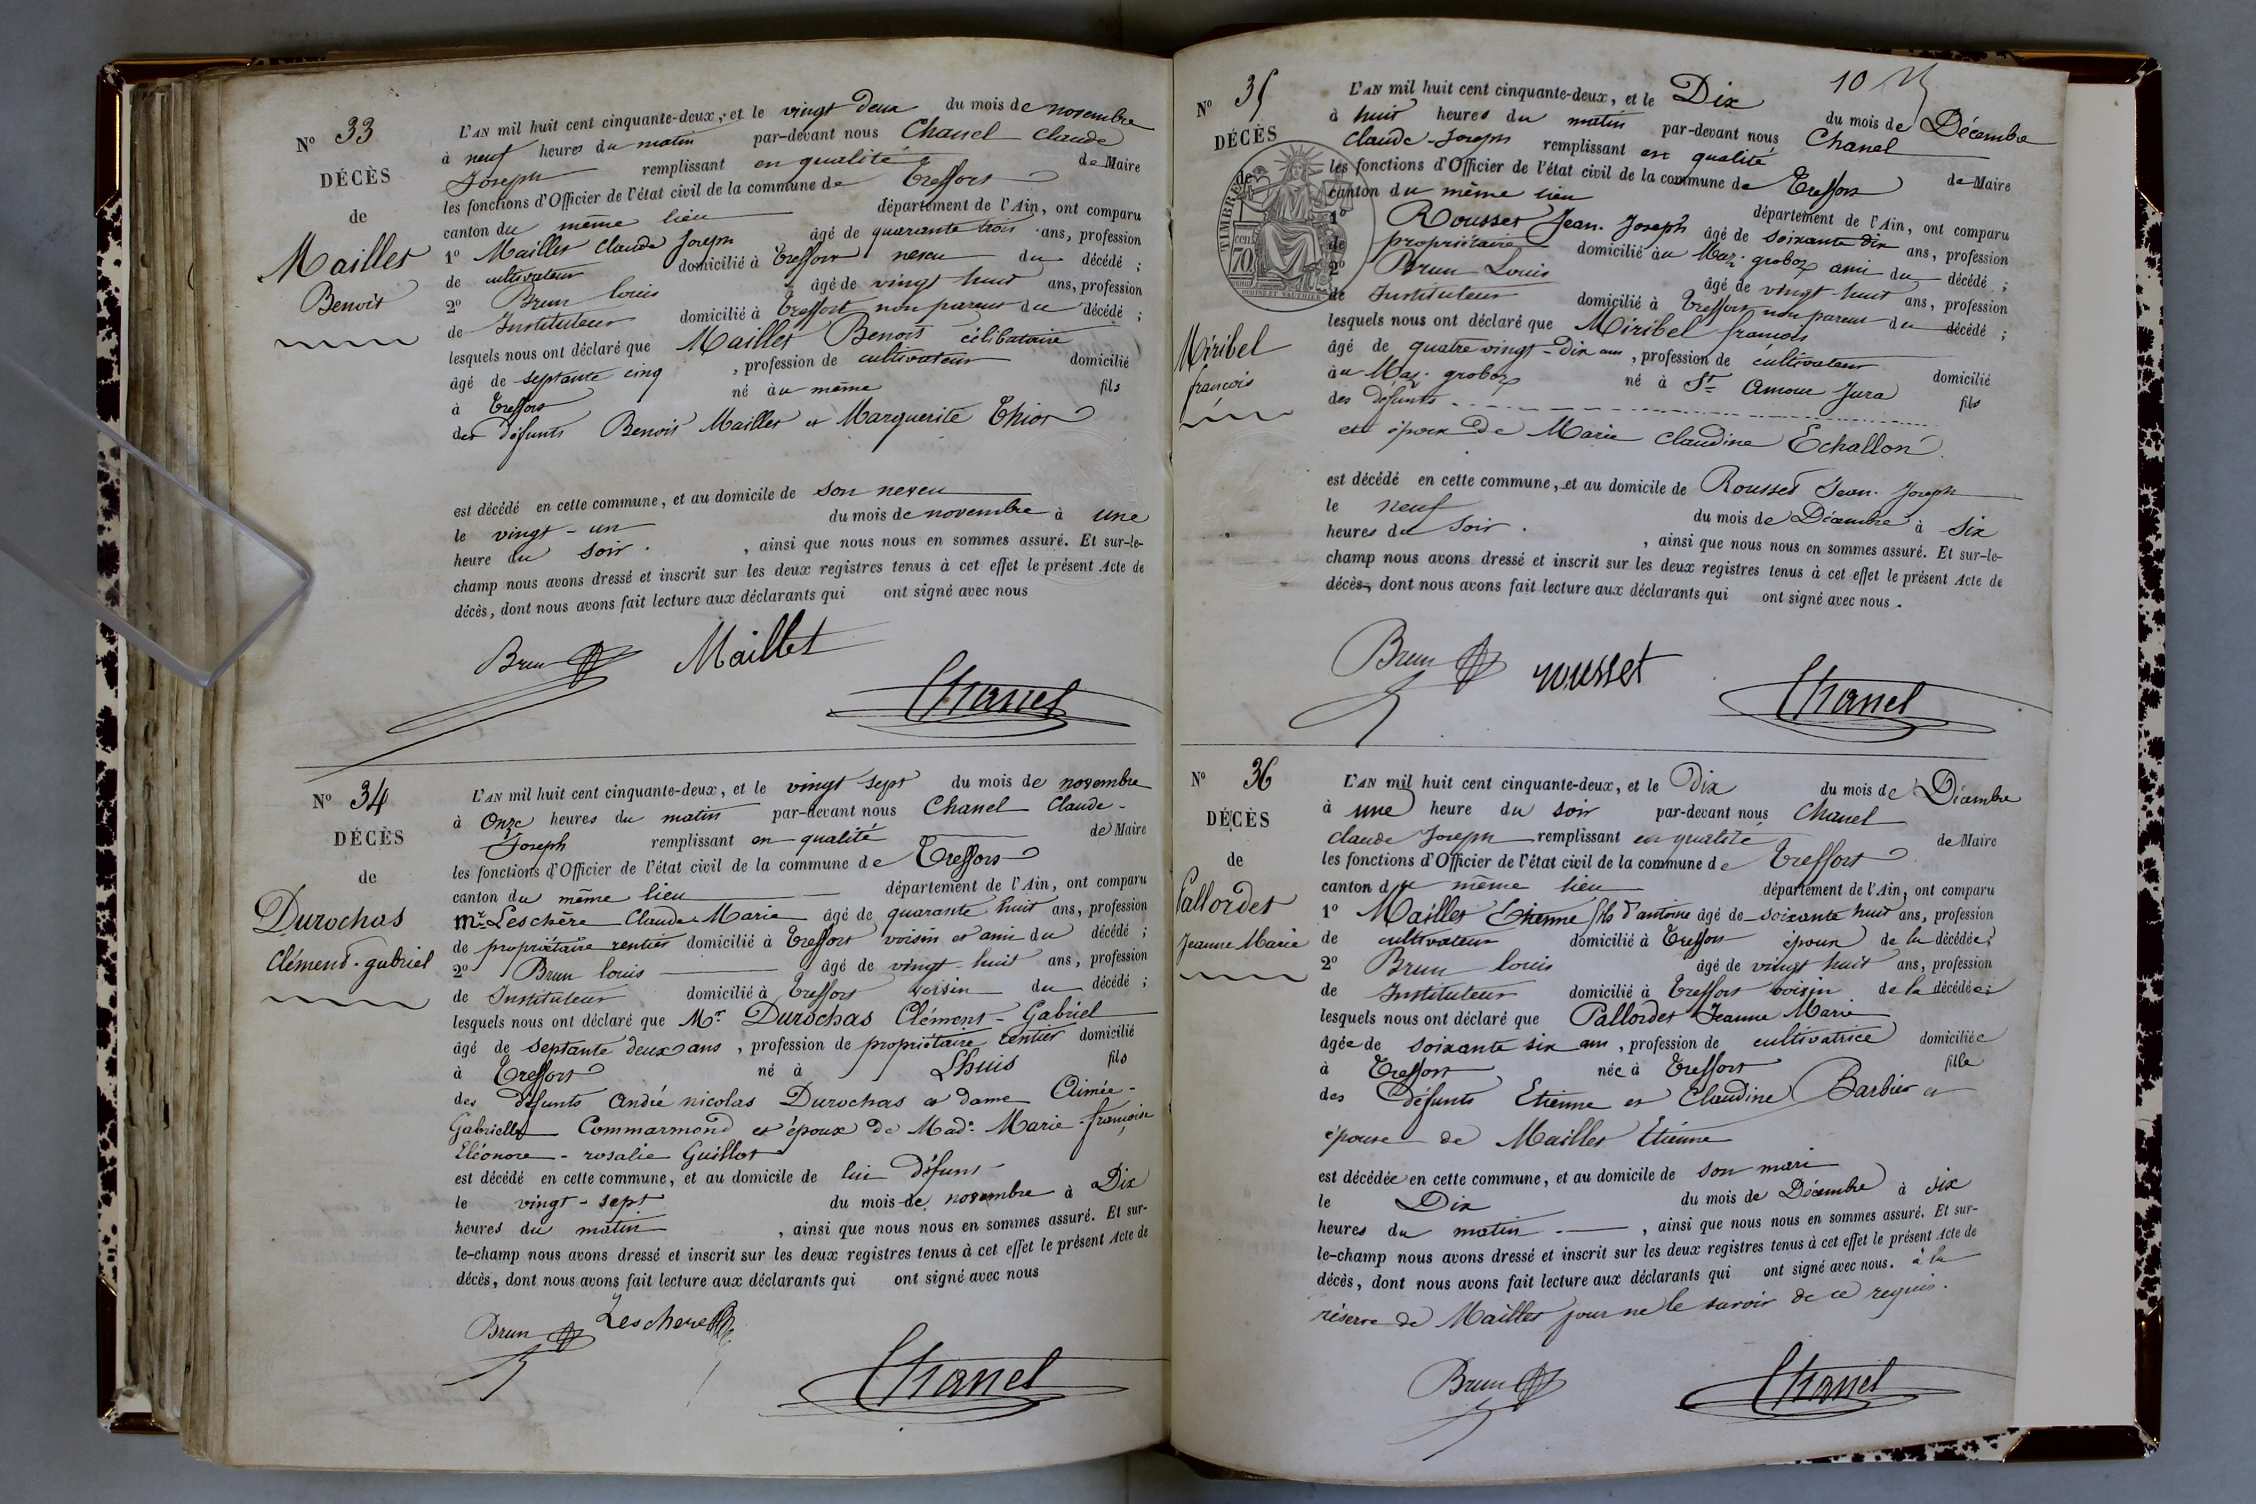 N° 33
DÉCÈS
de
Maillet
Benoit
L'AN mil huit cent cinquante-deux, et le vingt deux du mois de novembre
à neuf heures du matin par-devant nous Chanel Claude
Joseph remplissant en qualité de Maire
les fonctions d'Officier de l'état civil de la commune de Treffort
canton du même lieu département de l'Ain, ont comparu
1° Maillet Claude Joseph âgé de quarante trois ans, profession
de cultivateur domicilié à Treffort neveu du décédé ;
2° Brun Louis âgé de vingt huit ans, profession
de Instituteur domicilié à Treffort non parent du décédé ;
lesquels nous ont déclaré que Maillet Benoit célibataire
âgé de septante cinq , profession de cultivateur domicilié
à Treffort né au même fils
des défunts Benoit Maillet et Marguerite Thior
est décédé en cette commune, et au domicile de son neveu
le vingt-un du mois de novembre à une
heure du soir. , ainsi que nous nous en sommes assuré. Et sur-le-
champ nous avons dressé et inscrit sur les deux registres tenus à cet effet le présent Acte de
décès, dont nous avons fait lecture aux déclarants qui ont signé avec nous
Brun Maillet
Chanel
N° 34
DÉCÈS
de
Durochas
Clément-gabriel
L'AN mil huit cent cinquante-deux, et le vingt sept du mois de novembre
à Onze heures du matin par-devant nous Chanel Claude-
Joseph remplissant en qualité de Maire
les fonctions d'Officier de l'état civil de la commune de Treffort
canton du même lieu département de l'Ain, ont comparu
Mr Leschère Claude Marie âgé de quarante huit ans, profession
de propriétaire rentier domicilié à Treffort voisin et ami du décédé ;
2° Brun Louis âgé de vingt-huit ans, profession
de Instituteur domicilié à Treffort voisin du décédé ;
lesquels nous ont déclaré que Mr Durochas Clément-Gabriel
âgé de septante deux ans , profession de propriétaire rentier domicilié
à Treffort né à Lhuis fils
des défunts André nicolas Durochas et dame Aimée-
Gabrielle Commarmond et époux de Made Marie-françoise
Eléonore-rosalie Guillot
est décédé en cette commune, et au domicile de lui défunt
le vingt-sept du mois de novembre à Dix
heures du matin , ainsi que nous nous en sommes assuré. Et sur-
le-champ nous avons dressé et inscrit sur les deux registres tenus à cet effet le présent Acte de
décès, dont nous avons fait lecture aux déclarants qui ont signé avec nous
Brun Leschere
Chanel
10
N° 35
DÉCÈS
de
TIMBRE
70
Miribel
françois
L'AN mil huit cent cinquante-deux, et le Dix du mois de Décembre
à huit heures du matin par-devant nous Chanel
Claude-Joseph remplissant en qualité de Maire
les fonctions d'Officier de l'état civil de la commune de Treffort
canton du même lieu département de l'Ain, ont comparu
1° Rousset Jean-Joseph âgé de soixante dix ans, profession
de propriétaire domicilié au Maz-groboz ami du décédé ;
2° Brun Louis âgé de vingt-huit ans, profession
de Instituteur domicilié à Treffort non parent du décédé ;
lesquels nous ont déclaré que Miribel françois
âgé de quatre vingt-Dix ans , profession de cultivateur domicilié
au Maz-groboz né à St Amour Jura fils
des défunts
et époux de Marie Claudine Echallon
est décédé en cette commune, et au domicile de Rousset Jean-Joseph
le neuf du mois de Décembre à six
heures du soir. , ainsi que nous nous en sommes assuré. Et sur-le-
champ nous avons dressé et inscrit sur les deux registres tenus à cet effet le présent Acte de
décès, dont nous avons fait lecture aux déclarants qui ont signé avec nous.
Brun rousset
Chanel
N° 36
DÉCÈS
de
Pallordet
Jeanne Marie
L'AN mil huit cent cinquante-deux, et le Dix du mois de Décembre
à une heure du soir par-devant nous Chanel
Claude Joseph remplissant en qualité de Maire
les fonctions d'Officier de l'état civil de la commune de Treffort
canton du même lieu département de l'Ain, ont comparu
1° Maillet Etienne fils d'antoine âgé de soixante huit ans, profession
de cultivateur domicilié à Treffort époux de la décédée ;
2° Brun Louis âgé de vingt huit ans, profession
de Instituteur domicilié à Treffort voisin de la décédée ;
lesquels nous ont déclaré que Pallordet Jeanne Marie
âgée de soixante six ans , profession de cultivatrice domiciliée
à Treffort née à Treffort fille
des défunts Etienne et Claudine Barbier et
épouse de Maillet Etienne
est décédée en cette commune, et au domicile de son mari
le Dix du mois de Décembre à six
heures du matin , ainsi que nous nous en sommes assuré. Et sur-
le-champ nous avons dressé et inscrit sur les deux registres tenus à cet effet le présent Acte de
décès, dont nous avons fait lecture aux déclarants qui ont signé avec nous. à la
réserve de Maillet pour ne le savoir de ce requis.
Brun
Chanel